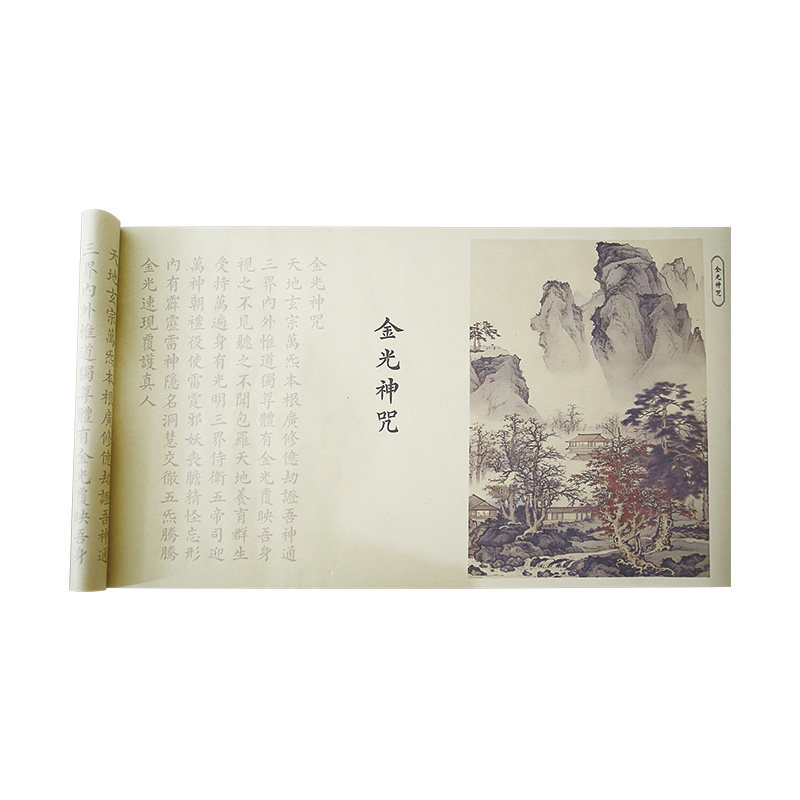 金光神咒
金光神咒
金光神咒
天地玄宗萬炁本根廣修億劫證吾神通
三界內外惟道獨尊體有金光覆映吾身
視之不見聽之不聞包羅天地養育群生
受持萬遍身有光明三界侍衛五帝司迎
萬神朝禮役使雷霆邪妖喪膽精怪忘形
內有霹靂雷神隱名洞慧交徹五炁騰騰
金光速現覆護真人
天地玄宗萬炁本根廣修億劫證吾神通
三界內外惟道獨尊體有金光覆映吾身